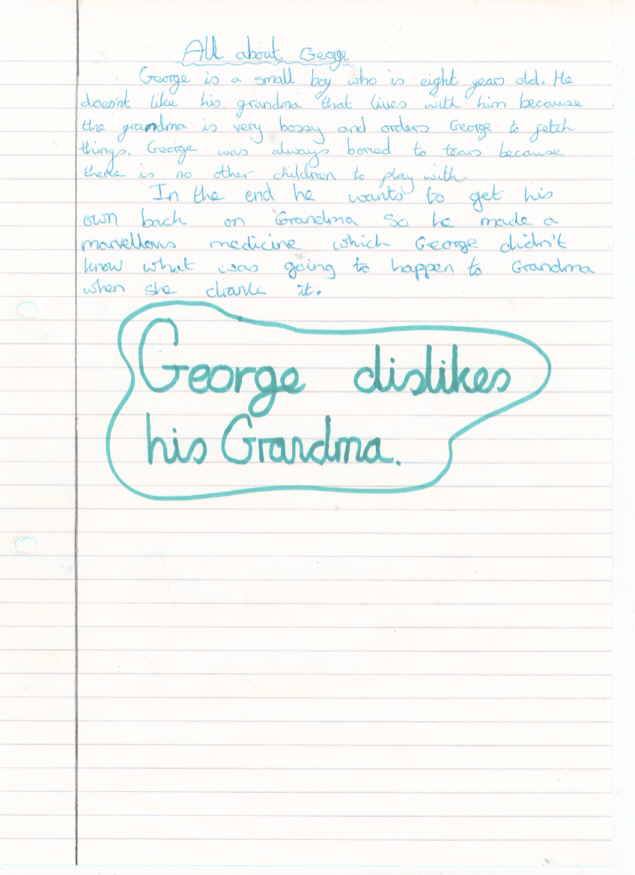 All about George
George is a small boy who is eight years old. He
doesnt like his grandma that lives with him because
the grandma is very bossy and orders George to fetch
things. George was always bored to tears because
there is no other children to play with.
In the end he wants to get his
own back on Grandma so he made a
marvellous medicine which George didn't
know what was going to happen to Grandma
when she drank it.
George dislikes
his Grandma.